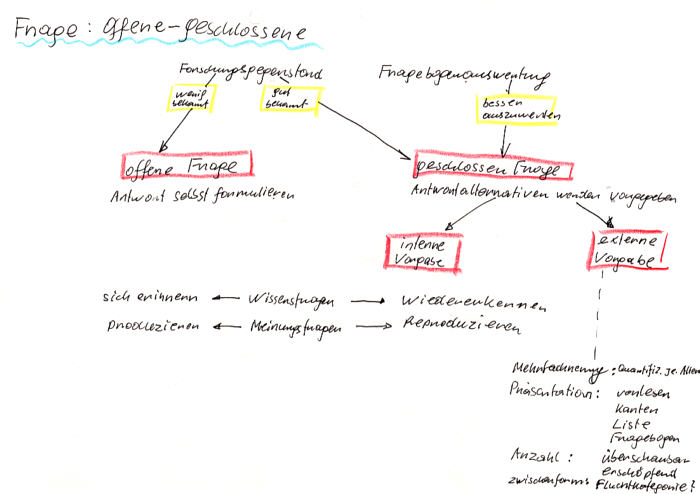 Frage: offene-geschlossene
Forschungsgegenstand
Fragebogenauswertung
wenig
bekannt
gut
bekannt
besser
auszuwerten
offene Frage
geschlossen Frage
Antwort selbst formulieren
Antwortalternativen werden vorgegeben
interne
Vorgabe
externe
Vorgabe
sich erinnern Wissensfragen Wiedererkennen
produzieren Meinungsfragen Reproduzieren
Mehrfachnennung: Quantifiz. je Altern
Präsentation: vorlesen
Karten
Liste
Fragebogen
Anzahl: überschaubar
erschöpfend
Zwischenform: Fluchtkategorie!